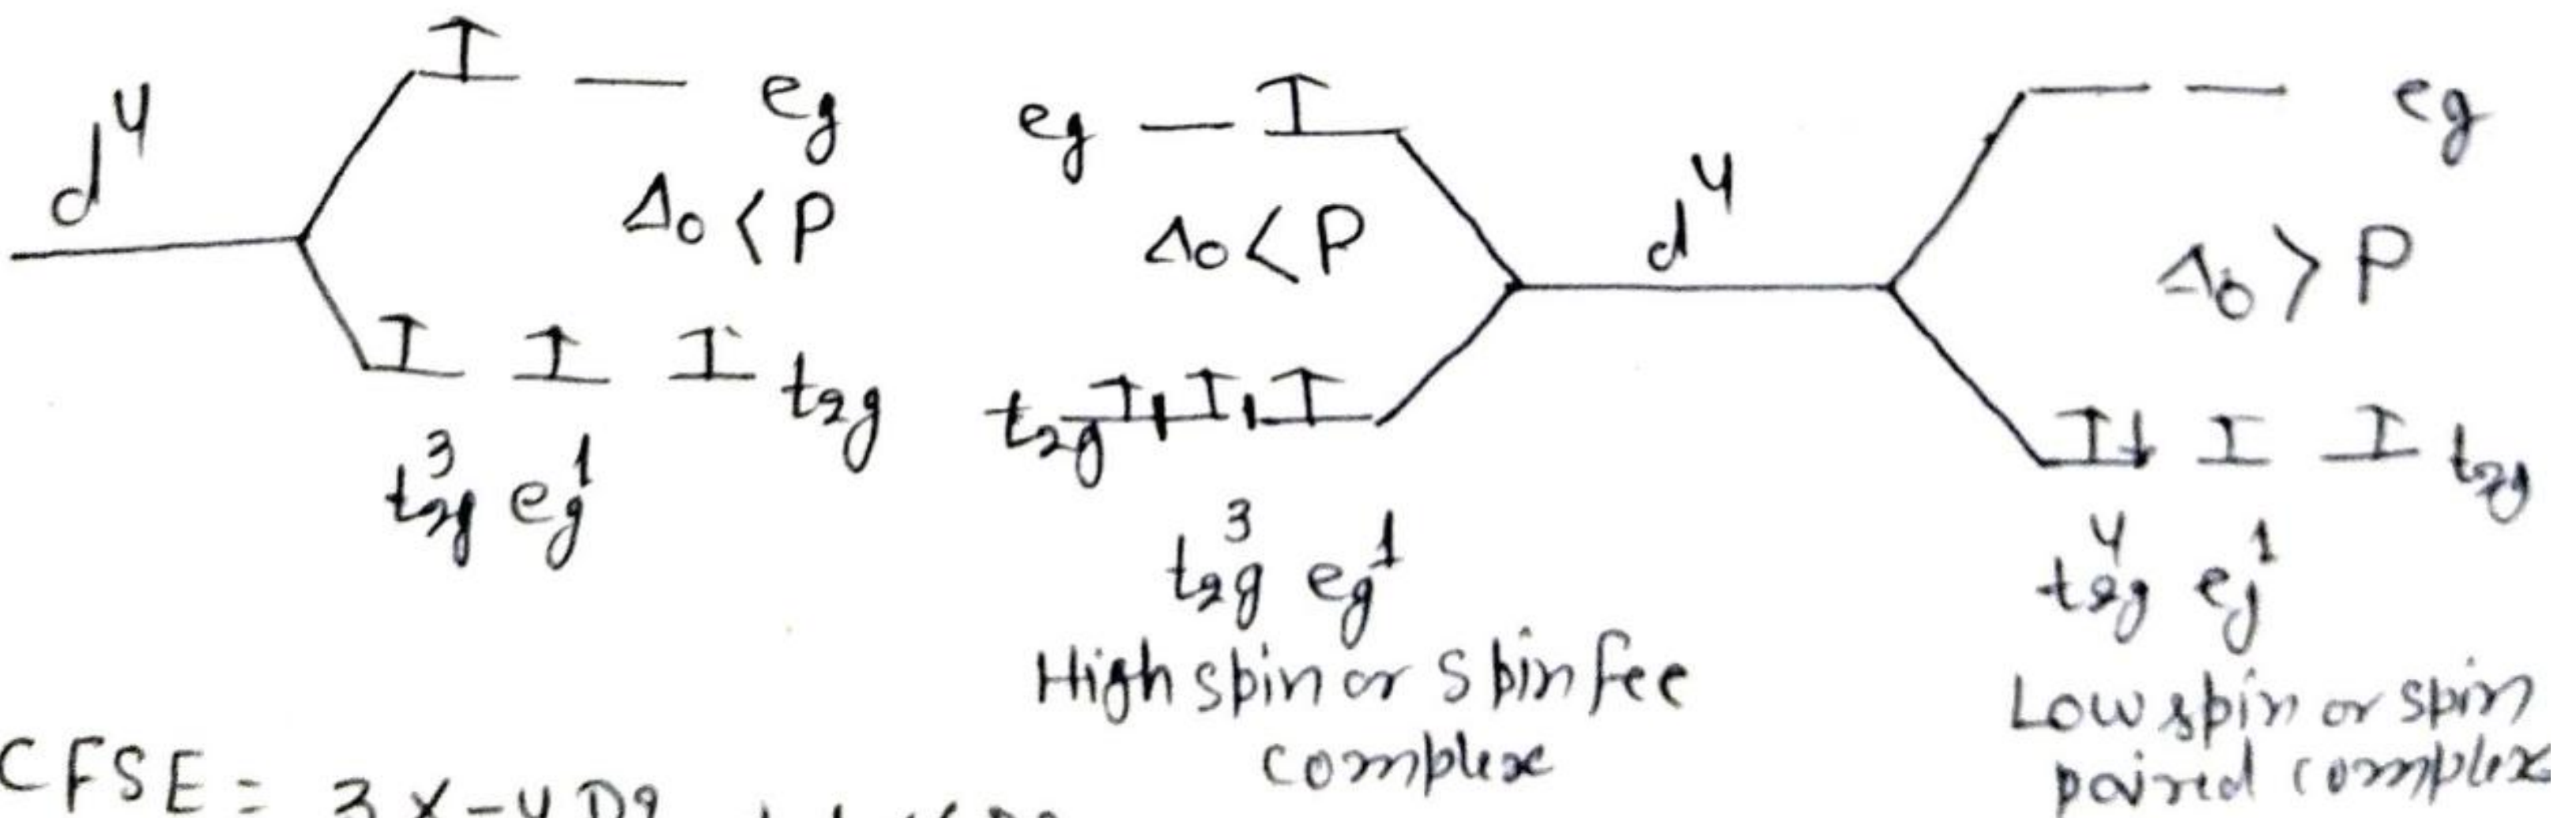 d⁴
eg
Δo < P
t2g
t2g³ eg¹
eg
Δo < P
t2g
t2g³ eg¹
High spin or spin fee
complex
d⁴
eg
Δo > P
t2g
t2g⁴ eg¹
Low spin or spin
paired complex
CFSE = 3 X -4 Dq